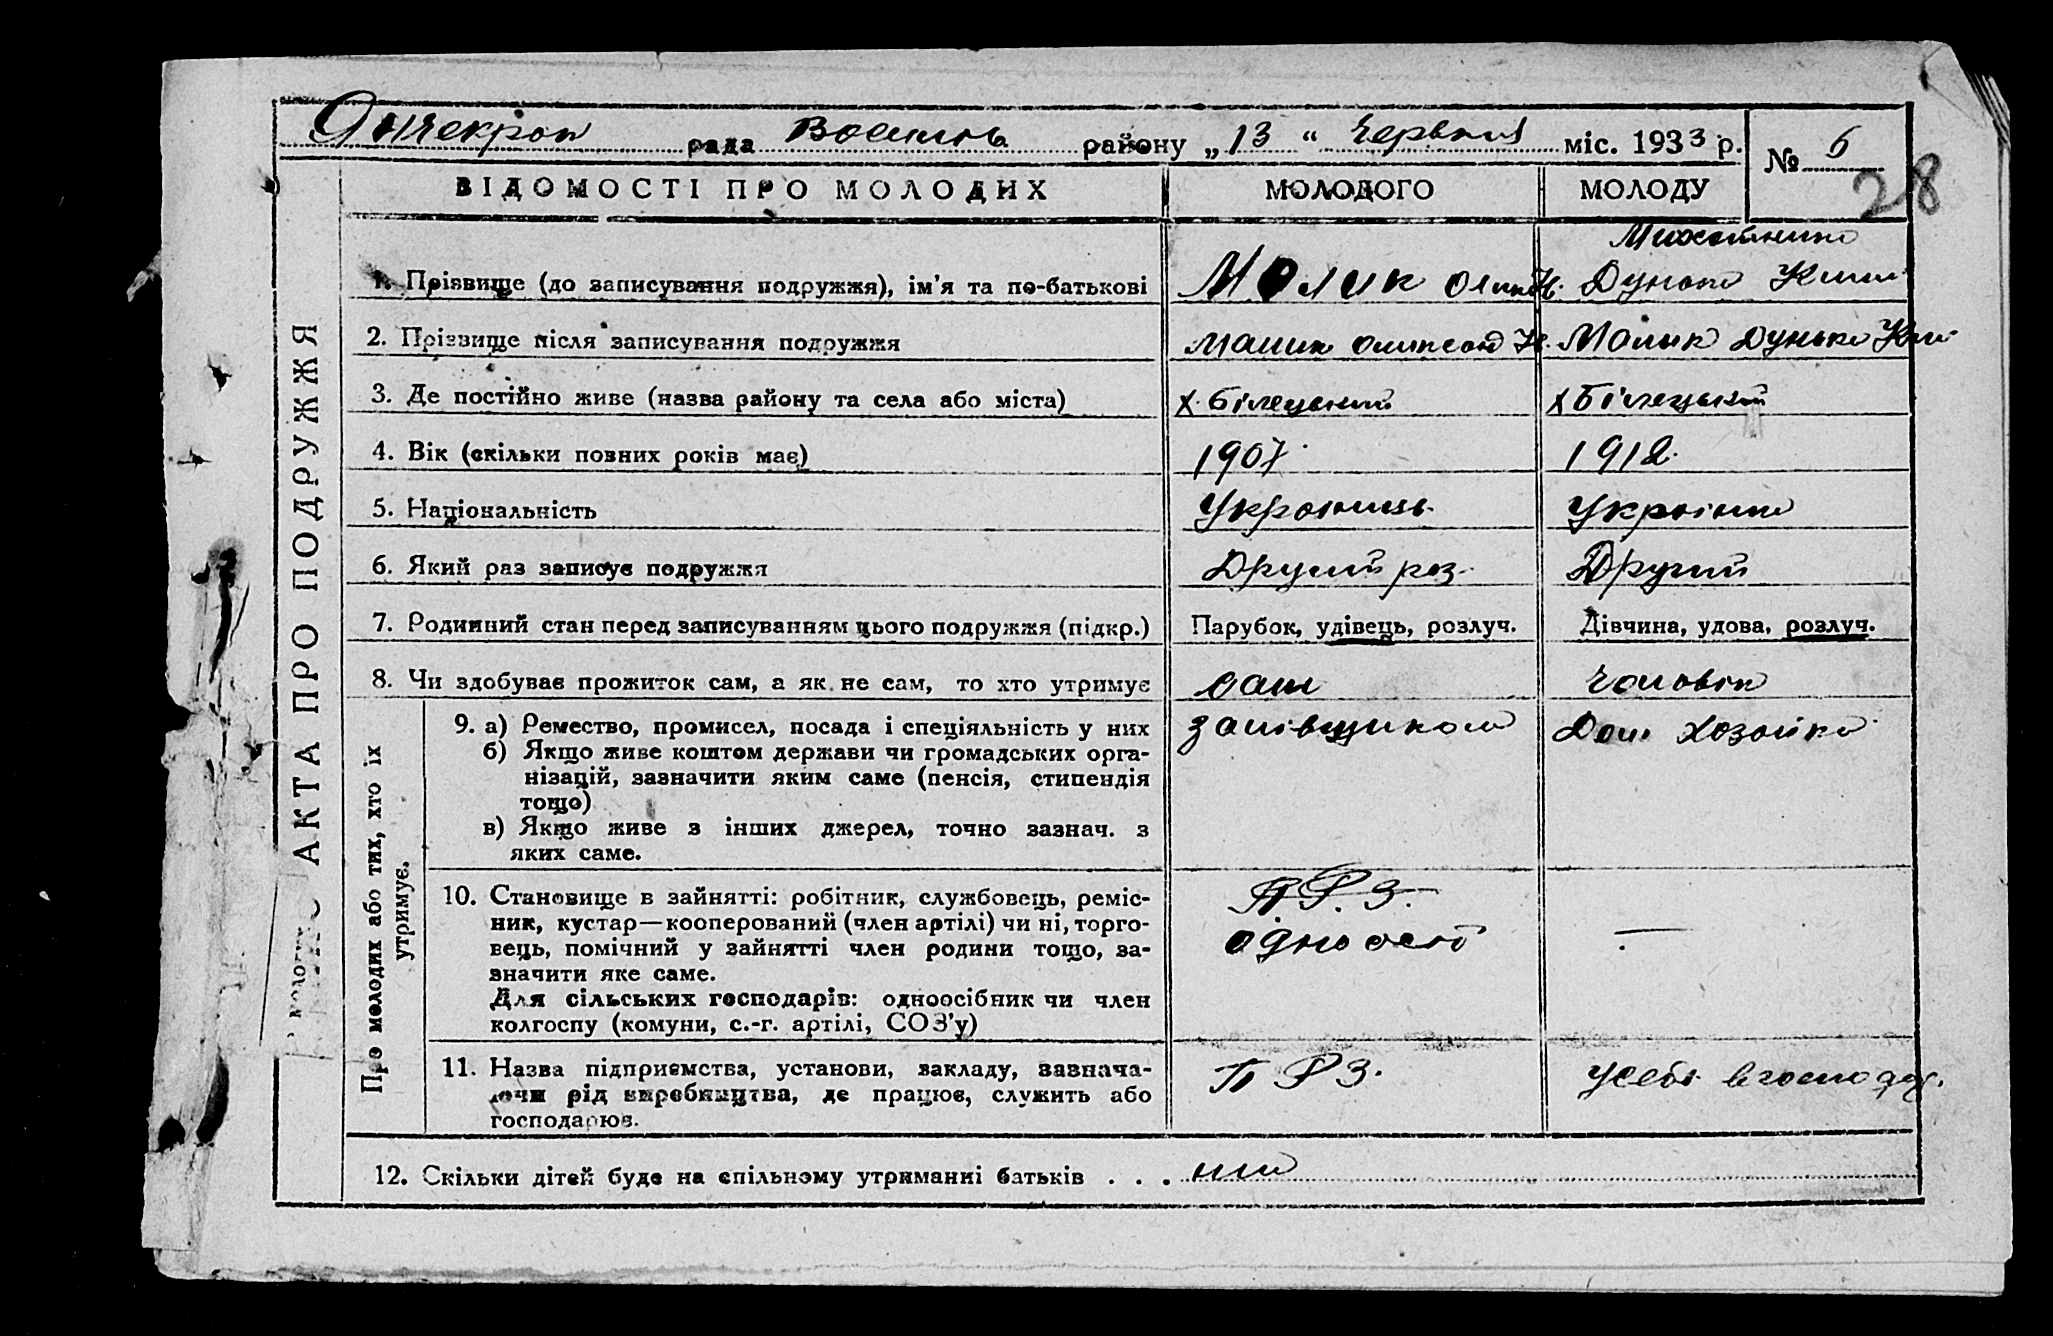 рада района „13“ Червня міс. 1933 р. № 6
28
ВІДОМОСТІ ПРО МОЛОДИХ МОЛОДОГО МОЛОДУ
АКТА ПРО ПОДРУЖЖЯ
1. Прізвище (до записування подружжя), ім'я та по-батькові Малик
2. Прізвище після записування подружжя Малик Малик Дунька
3. Де постійно живе (назва району та села або міста) х. Білецький х Білецький
4. Вік (скільки повних років має) 1907 1912
5. Національність Українець Українка
6. Який раз записує подружжя Другий раз Другий
7. Родинний стан перед записуванням цього подружжя (підкр.) Парубок, удівець, розлуч. Дівчина, удова, розлуч.
8. Чи здобуває прожиток сам, а як не сам, то хто утримує сам Чоловік
Про молодих або тих, хто їх
утримує.
9. а) Ремество, промисел, посада і спеціяльність у них Дом Хозяйка
б) Якщо живе коштом держави чи громадських орга-
нізацій, зазначити яким саме (пенсія, стипендія
тощо)
в) Якщо живе з інших джерел, точно зазнач. з
яких саме.
10. Становище в зайнятті: робітник, службовець, реміс- П.Р.З.
ник, кустар—кооперований (член артілі) чи ні, торго-
вець, помічний у зайнятті член родини тощо, за-
значити яке саме.
Для сільських господарів: одноосібник чи член
колгоспу (комуни, с.-г. артілі, СОЗ'у)
11. Назва підприємства, установи, закладу, зазнача- П Р З.
ючи рід виробництва, де працює, служить або
господарює.
12. Скільки дітей буде на спільному утриманні батьків . . .